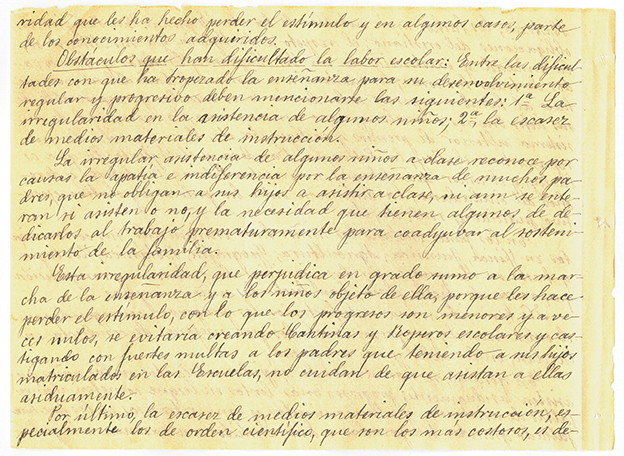 ridad que les ha hecho perder el estímulo y en algunos casos, parte
de los conocimientos adquiridos.
Obstáculos que han dificultado la labor escolar: Entre las dificul
tades con que ha tropezado la enseñanza para su desenvolvimiento
regular y progresivo deben mencionarse las siguientes: 1ª La
irregularidad en la asistencia de algunos niños; 2ª, la escasez
de medios materiales de instrucción.
La irregular asistencia de algunos niños a clase reconoce por
causas la apatía e indiferencia por la enseñanza de muchos pa-
dres, que no obligan a sus hijos a asistir a clase, ni aun se ente-
ran si asisten o no, y la necesidad que tienen algunos de de-
dicarlos al trabajo prematuramente para coadyubar al sosteni-
miento de la familia.
Esta irregularidad, que perjudica en grado sumo a la mar-
cha de la enseñanza y a los niños objeto de ella, porque les hace
perder el estímulo, con lo que los progresos son menores y a ve-
ces nulos, se evitaría creando Cantinas y Roperos escolares y cas-
tigando con fuertes multas a los padres que teniendo a sus hijos
matriculados en las Escuelas, no cuidan de que asistan a ellas
asiduamente.
Por último, la escasez de medios materiales de instrucción, es-
pecialmente los de orden científico, que son los más costosos, es de-